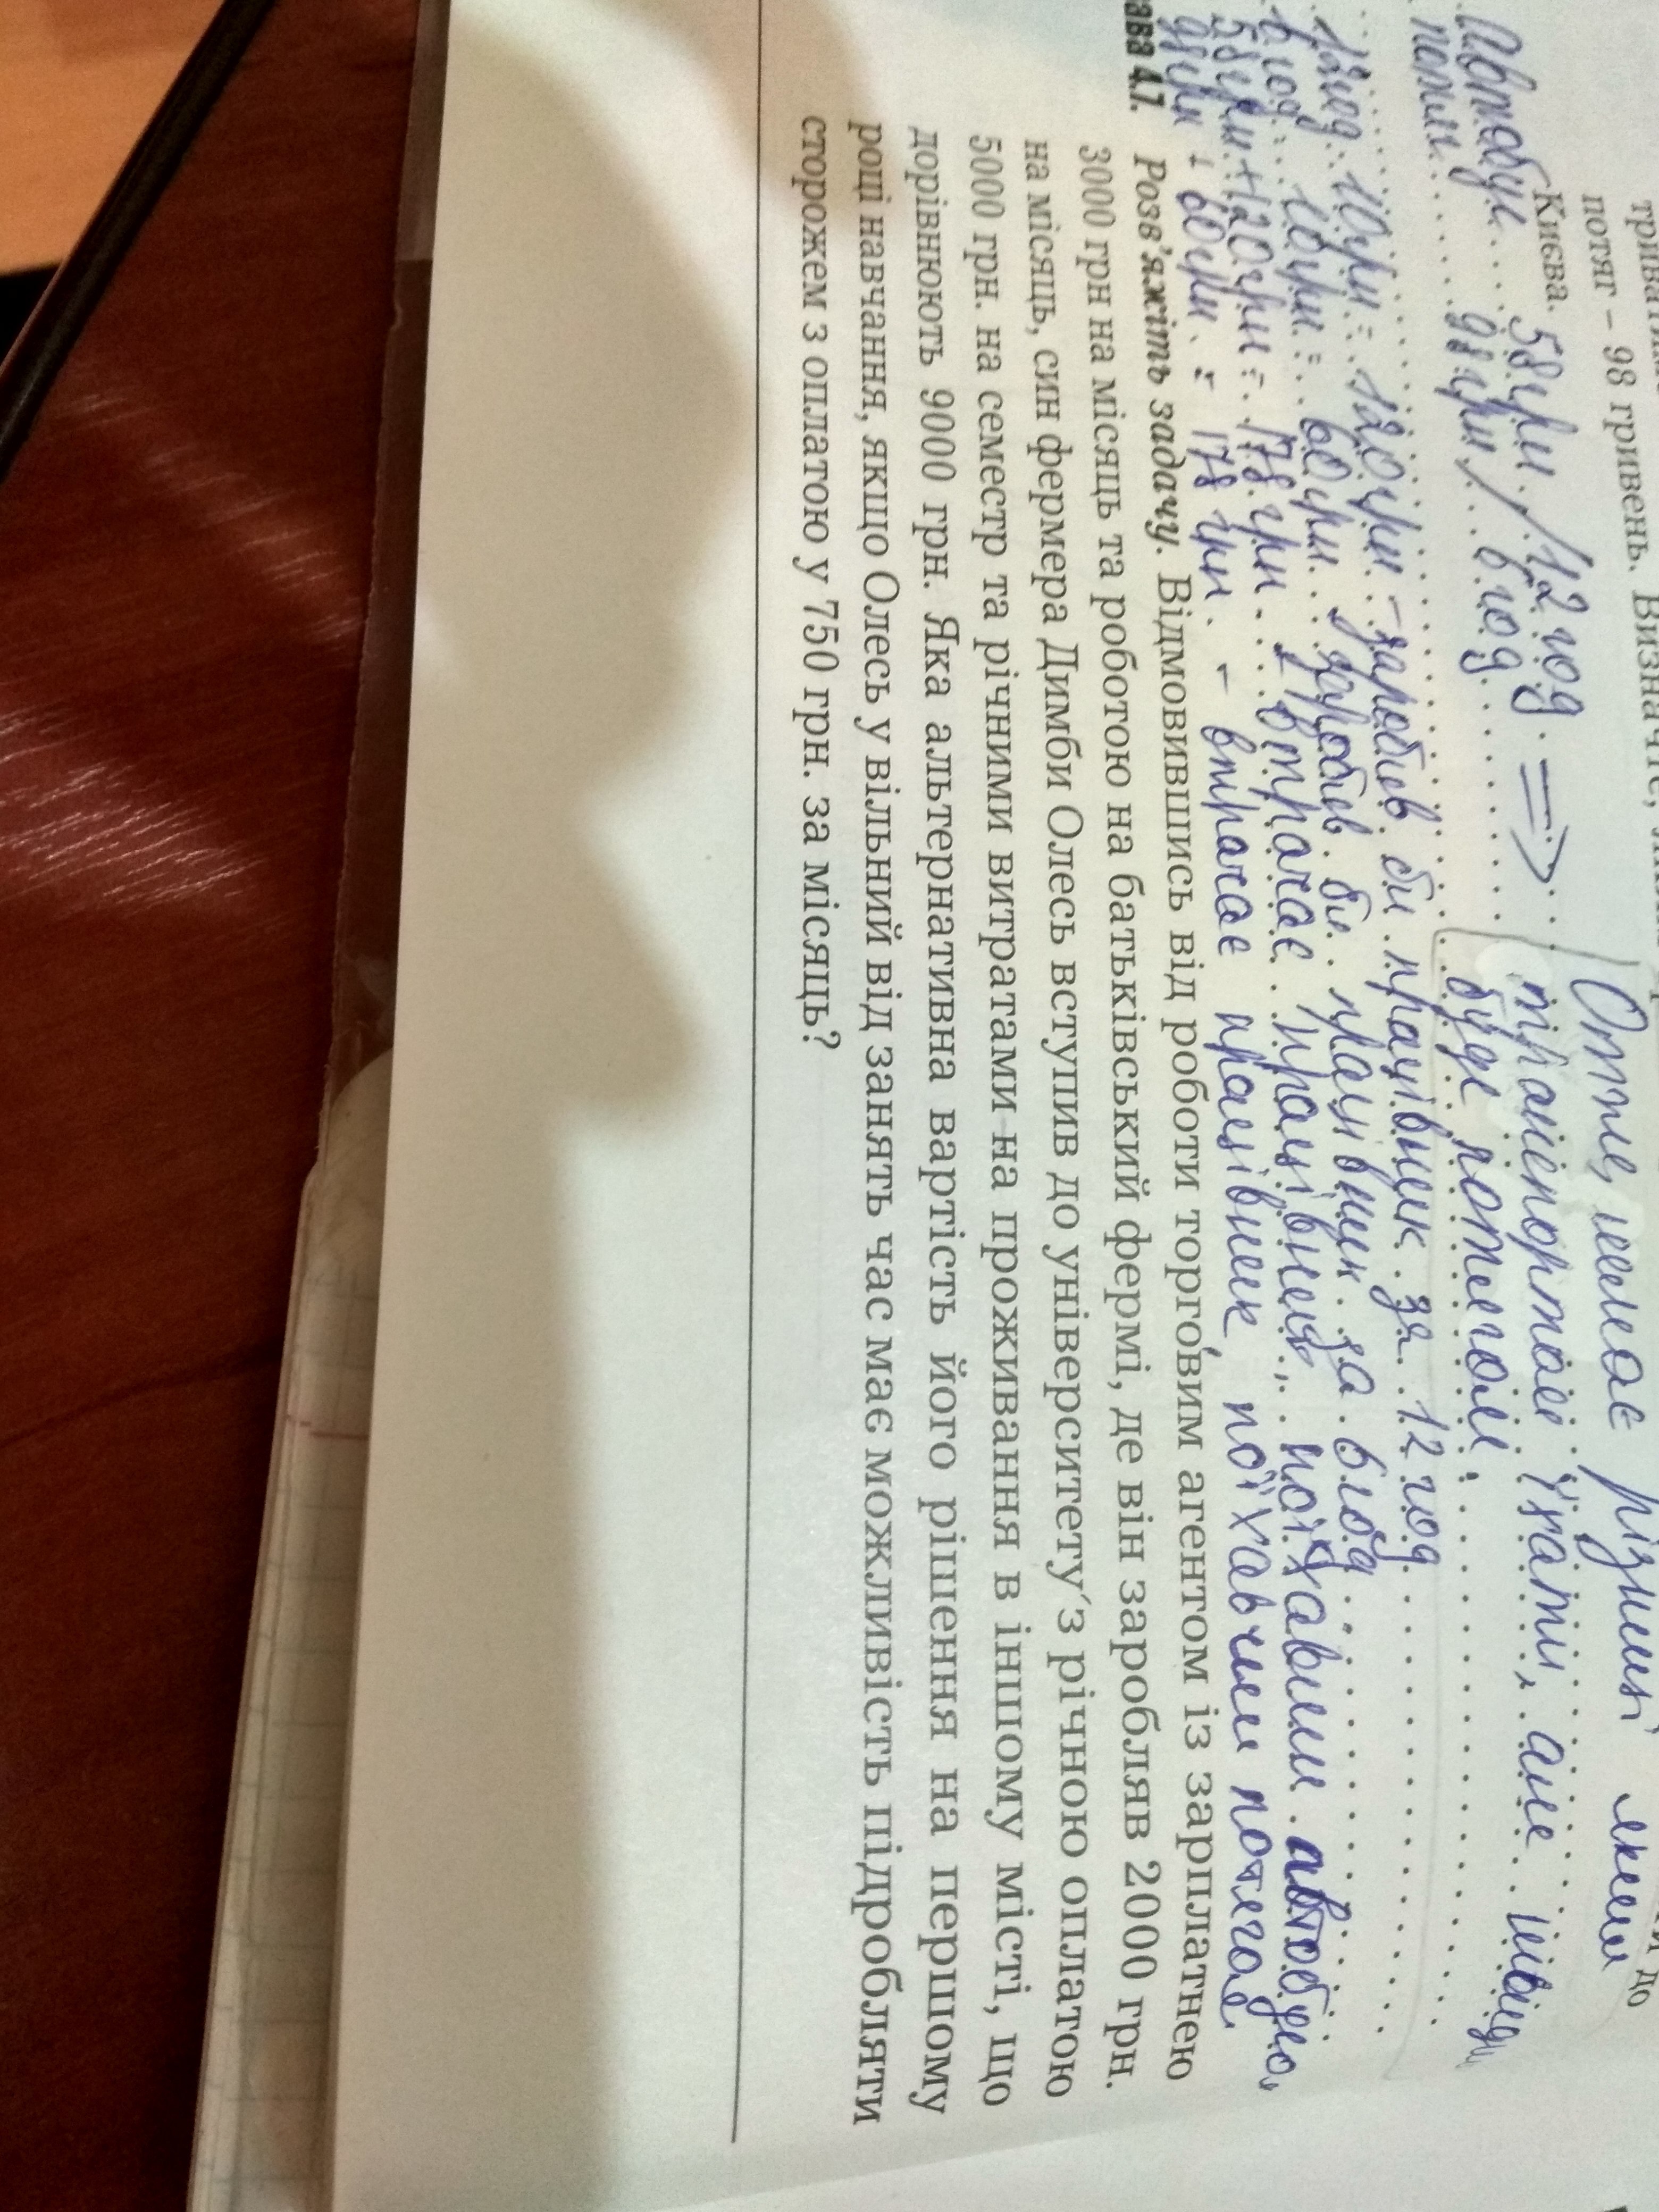 потяг – 98 гривень. Визначте,
до
Києва.
Отже, немає різниці яким
Автобус 58грн / 12 год => транспортом їхати, але швидш
потяг 98 грн / 6 год буде потягом.
12год · 10грн = 120 грн – заробив би працівник за 12 год
6 год · 10грн = 60 грн – заробив би працівник за 6 год
58грн + 120грн = 178 грн – втрачає працівник, поїхавши автобусом
98грн + 60грн = 178 грн – втрачає працівник поїхавши потягом
ава 4.7. Розв'яжіть задачу. Відмовившись від роботи торговим агентом із зарплатнею
3000 грн на місяць та роботою на батьківський фермі, де він заробляв 2000 грн.
на місяць, син фермера Димби Олесь вступив до університету з річною оплатою
5000 грн. на семестр та річними витратами на проживання в іншому місті, що
дорівнюють 9000 грн. Яка альтернативна вартість його рішення на першому
році навчання, якщо Олесь у вільний від занять час має можливість підробляти
сторожем з оплатою у 750 грн. за місяць?